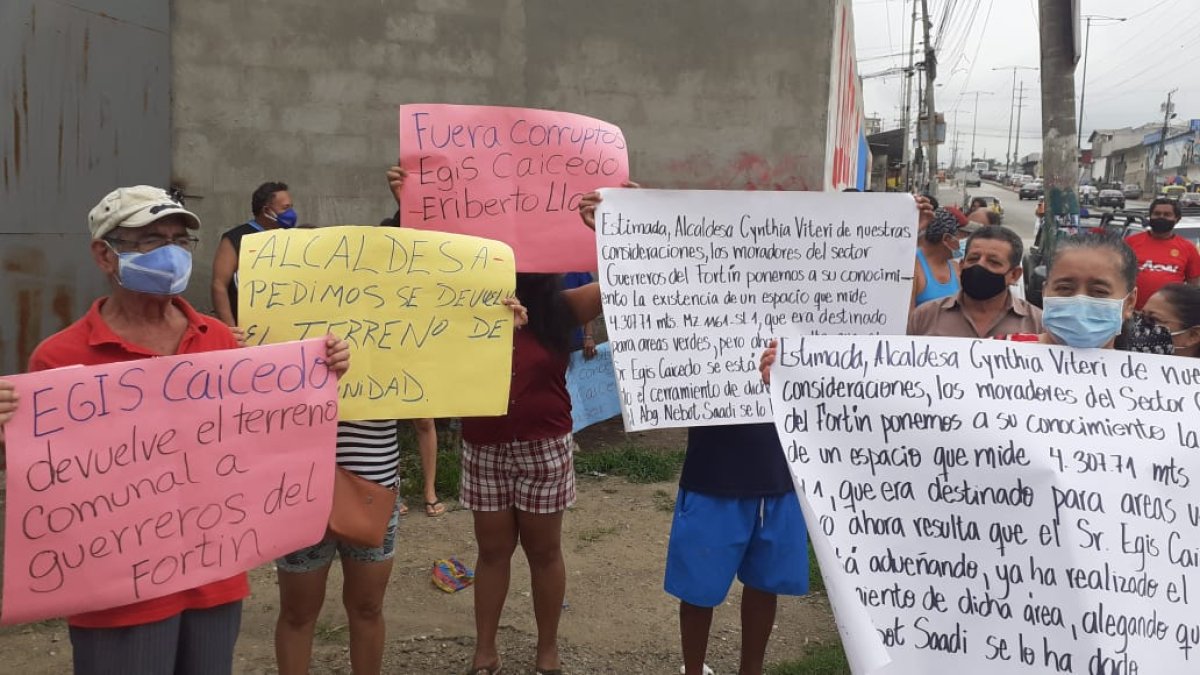 Fuera Corruptos
Egis Caicedo
-Eriberto
ALCALDESA-
PEDIMOS SE DEVUELV
EL TERRENO DE
NIDAD.
EGIS CAiCEDO
devuelve el terreno
comunal a
guerreros del
Fortín
Estimada, Alcaldesa Cynthia Viteri de nuestras
consideraciones, los moradores del sector
Guerreros del Fortín ponemos a su conocimi-
ento la existencia de un espacio que mide
4.307.71 mts. Mz 1161. SL 1, que era destinado
para areas verdes, pero aho
Sr Egis Caicedo se está
o el cerramiento de dich
l Abg Nebot Saadi se lo
Estimada, Alcaldesa Cynthia Viteri de nues
consideraciones, los moradores del Sector G
del Fortín ponemos a su conocimiento la
de un espacio que mide 4.307.71 mts
1, que era destinado para areas v
ro ahora resulta que el Sr. Egis Cai
tá adueñando, ya ha realizado el
miento de dicha área, alegando que
bot Saadi se lo ha dado